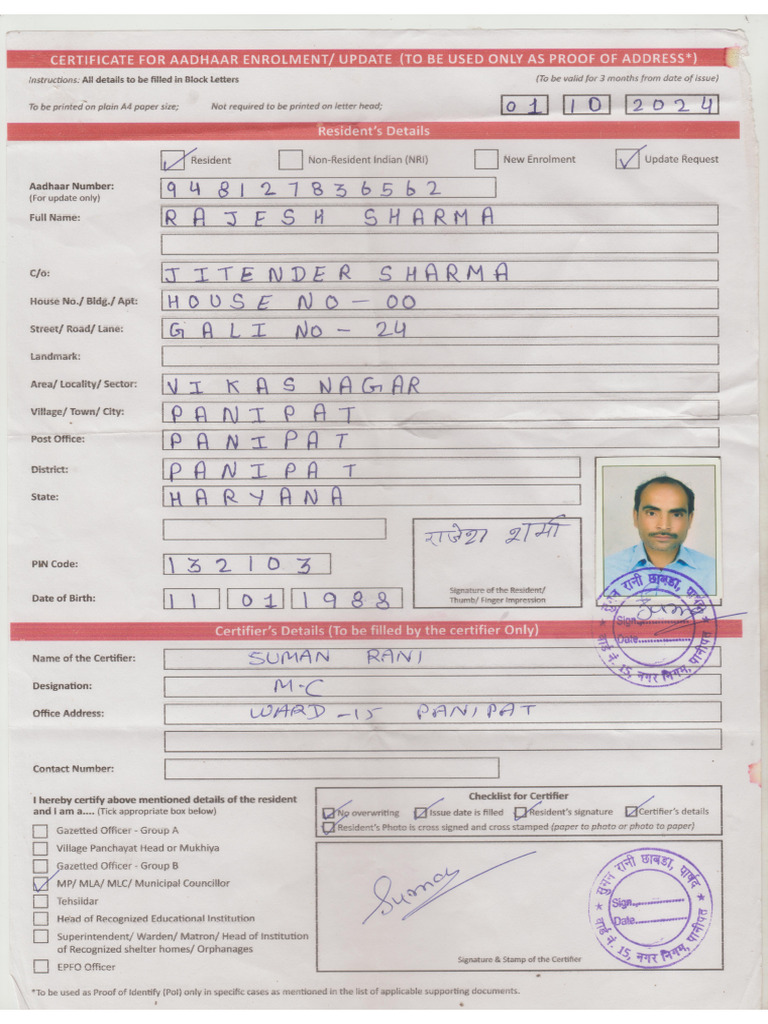 CERTIFICATE FOR AADHAAR ENROLMENT/ UPDATE (TO BE USED ONLY AS PROOF OF ADDRESS*)
Instructions: All details to be filled in Block Letters (To be valid for 3 months from date of issue)
To be printed on plain A4 paper size; Not required to be printed on letter head; 01 10 2024
Resident's Details
Resident Non-Resident Indian (NRI) New Enrolment Update Request
Aadhaar Number: 948127836562
(For update only)
Full Name: RAJESH SHARMA
C/o: JITENDER SHARMA
House No./ Bldg./ Apt: HOUSE NO-00
Street/ Road/ Lane: GALI No - 24
Landmark:
Area/ Locality/ Sector: VIKAS NAGAR
Village/ Town/ City: PANIPAT
Post Office: PANIPAT
District: PANIPAT
State: HARYANA
राजेश शर्मा
PIN Code: 132103
Signature of the Resident/
Thumb/ Finger Impression
Date of Birth: 11 01 1988
सुमन रानी छाबडा, पार्षद
Sign.
Date
वार्ड नं. 15, नगर निगम, पानीपत
Certifier's Details (To be filled by the certifier Only)
Name of the Certifier: SUMAN RANI
Designation: M-C
Office Address: WARD -15 PANIPAT
Contact Number:
I hereby certify above mentioned details of the resident
and I am a.... (Tick appropriate box below)
Gazetted Officer - Group A
Village Panchayat Head or Mukhiya
Gazetted Officer - Group B
MP/ MLA/ MLC/ Municipal Councillor
Tehsildar
Head of Recognized Educational Institution
Superintendent/ Warden/ Matron/ Head of Institution
of Recognized shelter homes/ Orphanages
EPFO Officer
Checklist for Certifier
No overwriting Issue date is filled Resident's signature Certifier's details
Resident's Photo is cross signed and cross stamped (paper to photo or photo to paper)
Suman
सुमन रानी छाबडा, पार्षद
Sign.
Date
वार्ड नं. 15, नगर निगम, पानीपत
Signature & Stamp of the Certifier
*To be used as Proof of Identify (PoI) only in specific cases as mentioned in the list of applicable supporting documents.